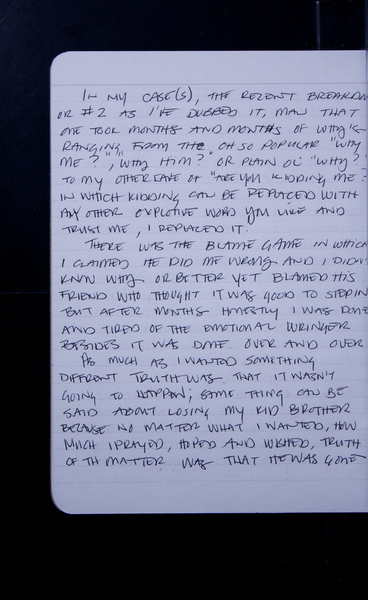 IN MY CASE(S), THE RECENT BREAKDOW
OR #2 AS I'VE DUBBED IT, MAN THAT
ONE TOOK MONTHS AND MONTHS OF WHY'S
RANGING FROM THE OH SO POPULAR "WHY
ME?", "WHY HIM?" OR PLAIN OL' "WHY?"
TO MY OTHER FAVE OF "ARE YOU KIDDING ME?
IN WHICH KIDDING CAN BE REPLACED WITH
ANY OTHER EXPLETIVE WORD YOU LIKE AND
TRUST ME, I REPLACED IT.
THERE WAS THE BLAME GAME IN WHICH
I CLAIMED HE DID ME WRONG AND I DIDN'
KNOW WHY OR BETTER YET BLAMED HIS
FRIEND WHO THOUGHT IT WAS GOOD TO STEP IN
BUT AFTER MONTHS HONESTLY I WAS DONE
AND TIRED OF THE EMOTIONAL WRINGER
BESIDES IT WAS DONE. OVER AND OVER
AS MUCH AS I WANTED SOMETHING
DIFFERENT TRUTH WAS THAT IT WASN'T
GOING TO HAPPEN; SAME THING CAN BE
SAID ABOUT LOSING MY KID BROTHER
BECAUSE NO MATTER WHAT I WANTED, HOW
MUCH I PRAYED, HOPED AND WISHED, TRUTH
OF TH MATTER WAS THAT HE WAS GONE